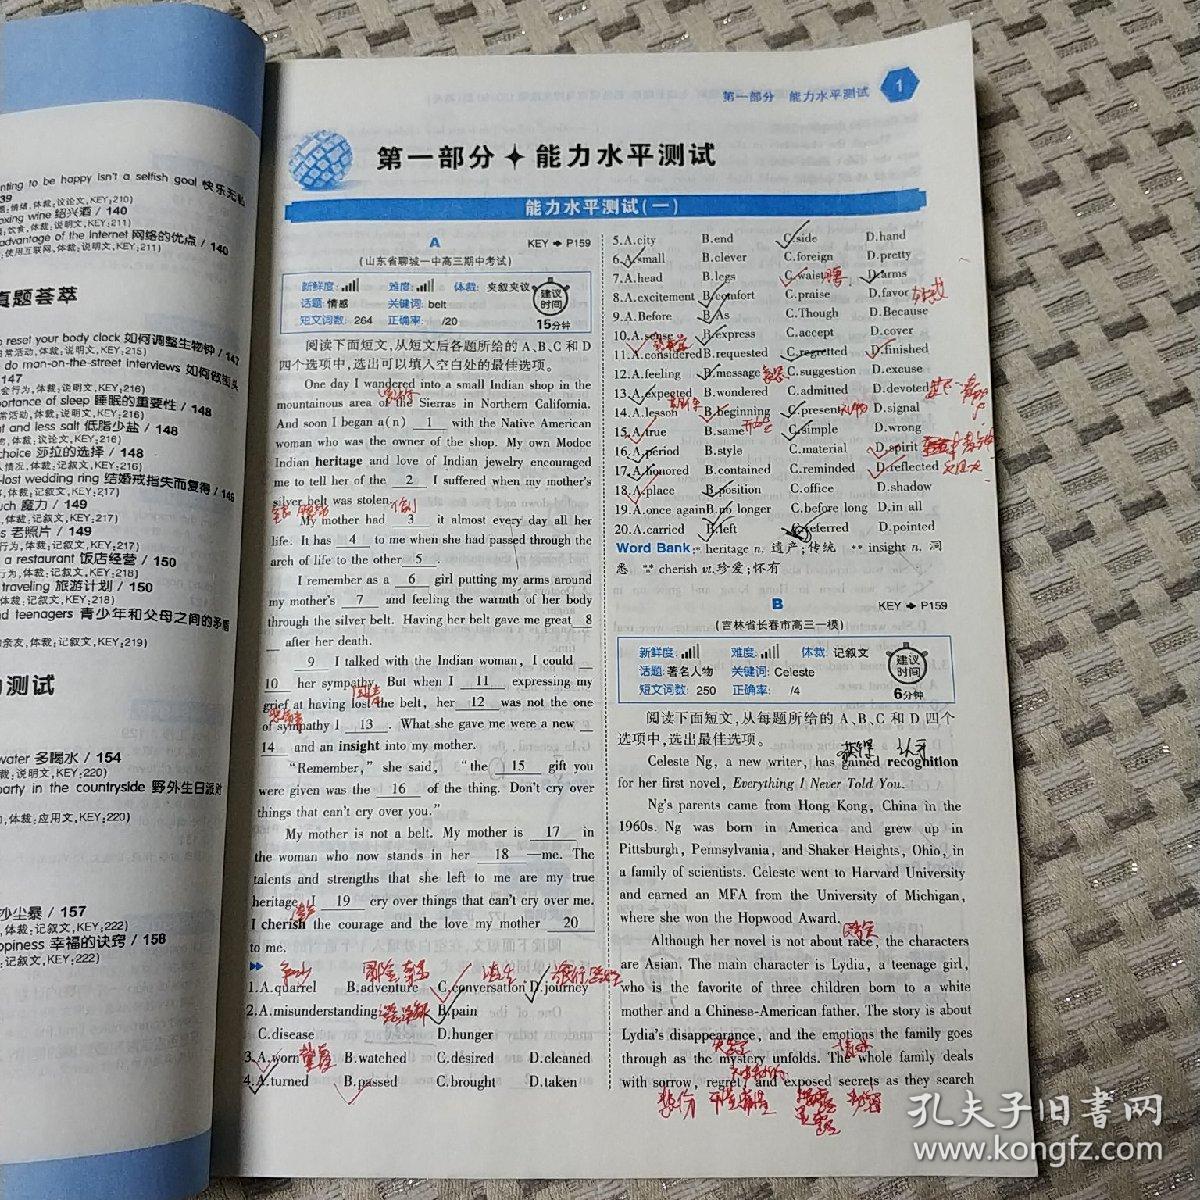 nting to be happy isn't a selfish goal 快乐无私
39
情绪,体裁:议论文,KEY:210)
oxing wine 绍兴酒 / 140
饮食,体裁:说明文,KEY:211)
advantage of the Internet 网络的优点 / 140
使用互联网,体裁:说明文,KEY:211)
真题荟萃
reset your body clock 如何调整生物钟 / 147
常活动,体裁:说明文,KEY:215)
do man-on-the-street interviews 如何做街头
147
会行为,体裁:说明文,KEY:216)
portance of sleep 睡眠的重要性 / 148
常活动,体裁:说明文,KEY:216)
nt and less salt 低脂少盐 / 148
体裁:议论文,KEY:216)
choice 莎拉的选择 / 148
人情况,体裁:记叙文,KEY:216)
lost wedding ring 结婚戒指失而复得 / 149
体裁:记叙文,KEY:217)
uch 魔力 / 149
体裁:记叙文,KEY:217)
s 老照片 / 149
行为,体裁:记叙文,KEY:217)
a restaurant 饭店经营 / 150
行为,体裁:记叙文,KEY:218)
traveling 旅游计划 / 150
体裁:记叙文,KEY:218)
nd teenagers 青少年和父母之间的矛盾
亲友,体裁:记叙文,KEY:219)
力测试
water 多喝水 / 154
体裁:说明文,KEY:220)
party in the countryside 野外生日派对
体裁:应用文,KEY:220)
沙尘暴 / 157
体裁:记叙文,KEY:222)
appiness 幸福的诀窍 / 158
记叙文,KEY:222)
第一部分 能力水平测试 1
第一部分 能力水平测试
能力水平测试(一)
A KEY P159
(山东省聊城一中高三期中考试)
新鲜度: 难度: 体裁: 夹叙夹议
话题: 情感 关键词: belt
短文词数: 264 正确率: /20
建议时间
15分钟
阅读下面短文,从短文后各题所给的 A、B、C 和 D
四个选项中,选出可以填入空白处的最佳选项。
One day I wandered into a small Indian shop in the
mountainous area of the Sierras in Northern California.
And soon I began a(n) 1 with the Native American
woman who was the owner of the shop. My own Modoc
Indian heritage and love of Indian jewelry encouraged
me to tell her of the 2 I suffered when my mother's
silver belt was stolen.
My mother had 3 it almost every day all her
life. It has 4 to me when she had passed through the
arch of life to the other 5 .
I remember as a 6 girl putting my arms around
my mother's 7 and feeling the warmth of her body
through the silver belt. Having her belt gave me great 8
after her death.
9 I talked with the Indian woman, I could
10 her sympathy. But when I 11 expressing my
grief at having lost the belt, her 12 was not the one
of sympathy I 13 . What she gave me were a new
14 and an insight into my mother.
"Remember," she said, "the 15 gift you
were given was the 16 of the thing. Don't cry over
things that can't cry over you."
My mother is not a belt. My mother is 17 in
the woman who now stands in her 18 —me. The
talents and strengths that she left to me are my true
heritage. I 19 cry over things that can't cry over me.
I cherish the courage and the love my mother 20
to me.
1.A.quarrel B.adventure C.conversation D.journey
2.A.misunderstanding B.pain
C.disease D.hunger
3.A.worn B.watched C.desired D.cleaned
4.A.turned B.passed C.brought D.taken
5.A.city B.end C.side D.hand
6.A.small B.clever C.foreign D.pretty
7.A.head B.legs C.waist 腰 D.arms
8.A.excitement B.comfort C.praise D.favor
9.A.Before B.As C.Though D.Because
10.A.sense B.express C.accept D.cover
11.A.considered B.requested C.regretted D.finished
12.A.feeling B.message C.suggestion D.excuse
13.A.expected B.wondered C.admitted D.devoted
14.A.lesson B.beginning C.present D.signal
15.A.true B.same C.simple D.wrong
16.A.period B.style C.material D.spirit
17.A.honored B.contained C.reminded D.reflected
18.A.place B.position C.office D.shadow
19.A.once again B.no longer C.before long D.in all
20.A.carried B.left C.referred D.pointed
Word Bank: heritage n. 遗产;传统 ** insight n. 洞
悉 ** cherish vt. 珍爱;怀有
B KEY P159
(吉林省长春市高三一模)
新鲜度: 难度: 体裁: 记叙文
话题: 著名人物 关键词: Celeste
短文词数: 250 正确率: /4
建议时间
6分钟
阅读下面短文,从每题所给的 A、B、C 和 D 四个
选项中,选出最佳选项。
获得 认可
Celeste Ng, a new writer, has gained recognition
for her first novel, Everything I Never Told You.
Ng's parents came from Hong Kong, China in the
1960s. Ng was born in America and grew up in
Pittsburgh, Pennsylvania, and Shaker Heights, Ohio, in
a family of scientists. Celeste went to Harvard University
and earned an MFA from the University of Michigan,
where she won the Hopwood Award.
Although her novel is not about race, the characters
are Asian. The main character is Lydia, a teenage girl,
who is the favorite of three children born to a white
mother and a Chinese-American father. The story is about
Lydia's disappearance, and the emotions the family goes
through as the mystery unfolds. The whole family deals
with sorrow, regret, and exposed secrets as they search
孔夫子旧书网
www.kongfz.com